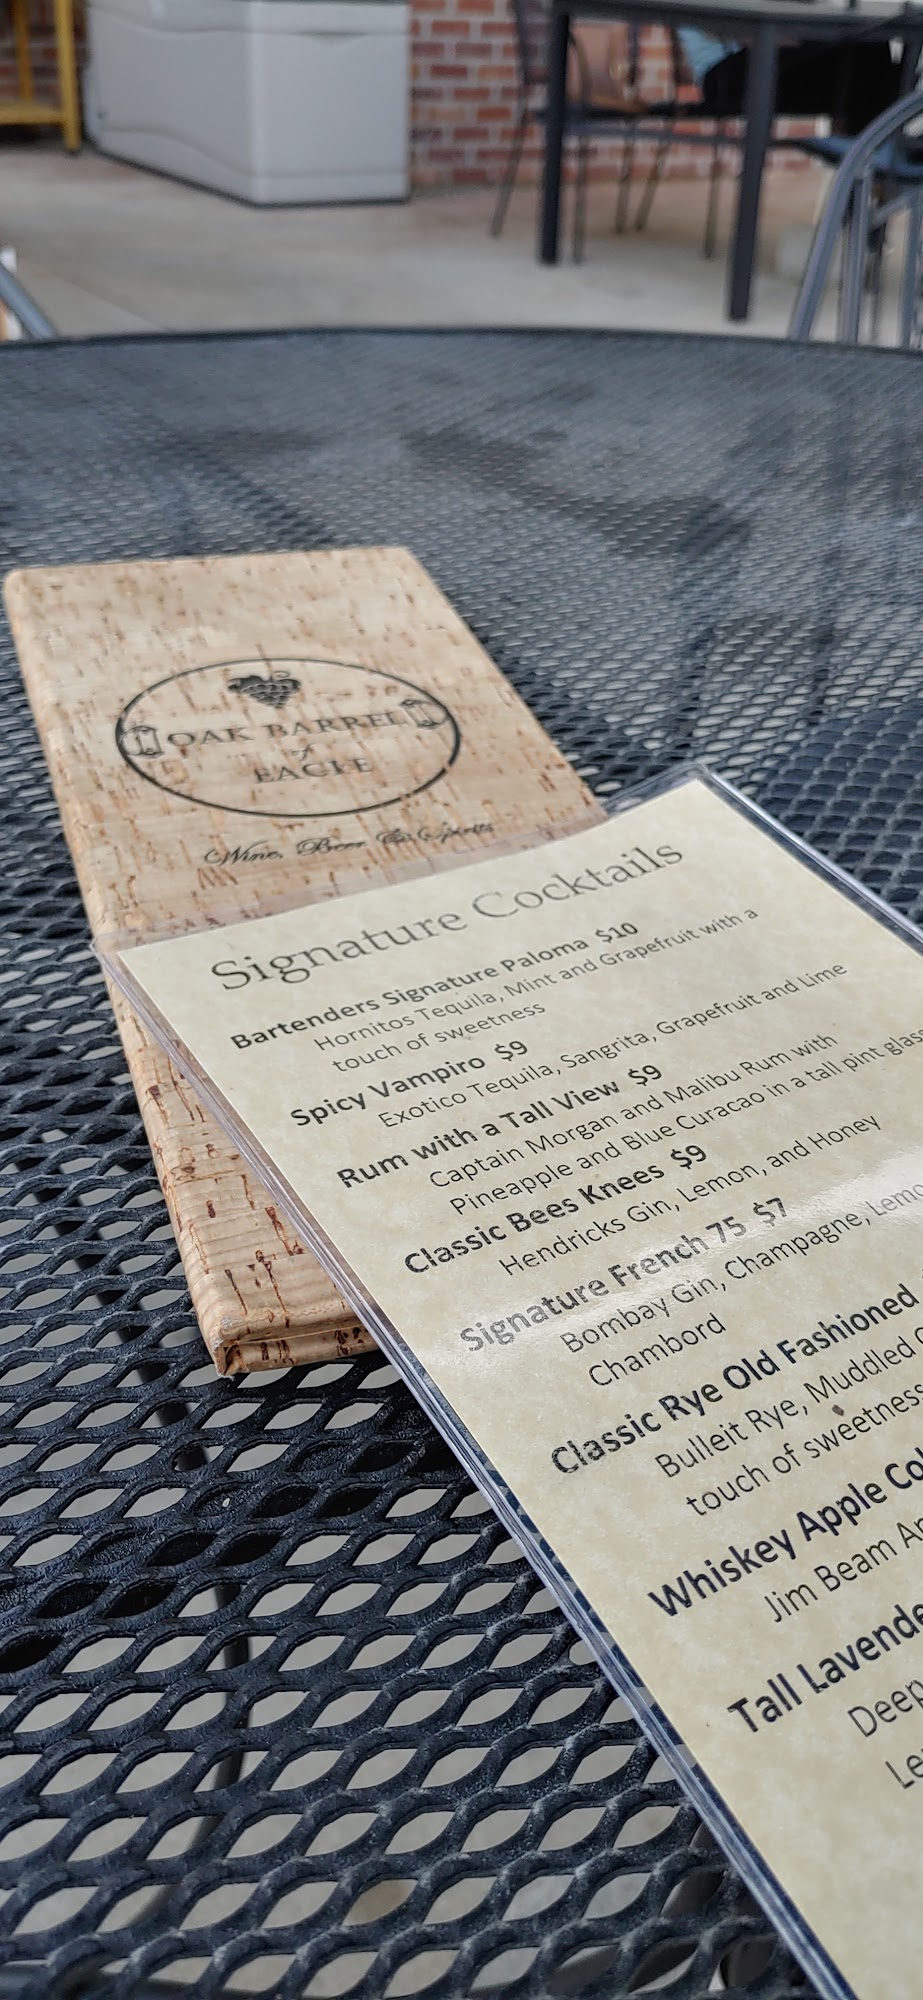 OAK BARREL
of
EAGLE
Wine, Beer & Spirits
Signature Cocktails
Bartenders Signature Paloma $10
Hornitos Tequila, Mint and Grapefruit with a
touch of sweetness
Spicy Vampiro $9
Exotico Tequila, Sangrita, Grapefruit and Lime
Rum with a Tall View $9
Captain Morgan and Malibu Rum with
Pineapple and Blue Curacao in a tall pint glass
Classic Bees Knees $9
Hendricks Gin, Lemon, and Honey
Signature French 75 $7
Bombay Gin, Champagne, Lemo
Chambord
Classic Rye Old Fashioned
Bulleit Rye, Muddled
touch of sweetness
Whiskey Apple Co
Jim Beam Ap
Tall Lavende
Deep
Le